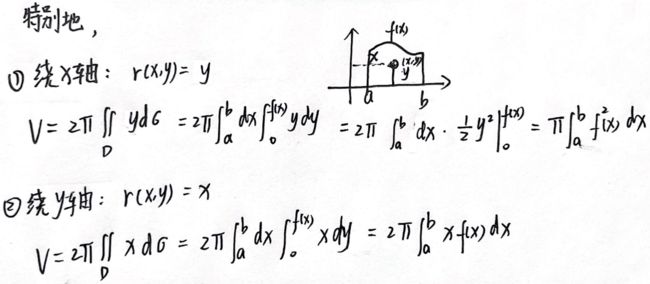 特别地，
f(x)
x (x,y)
y
a b
① 绕x轴： r(x,y) = y
V = 2π∬_D y dσ = 2π∫_a^b dx ∫_0^{f(x)} y dy = 2π ∫_a^b dx · ½y²|_0^{f(x)} = π∫_a^b f²(x) dx
② 绕y轴： r(x,y) = x
V = 2π∬_D x dσ = 2π∫_a^b dx ∫_0^{f(x)} x dy = 2π∫_a^b x f(x) dx